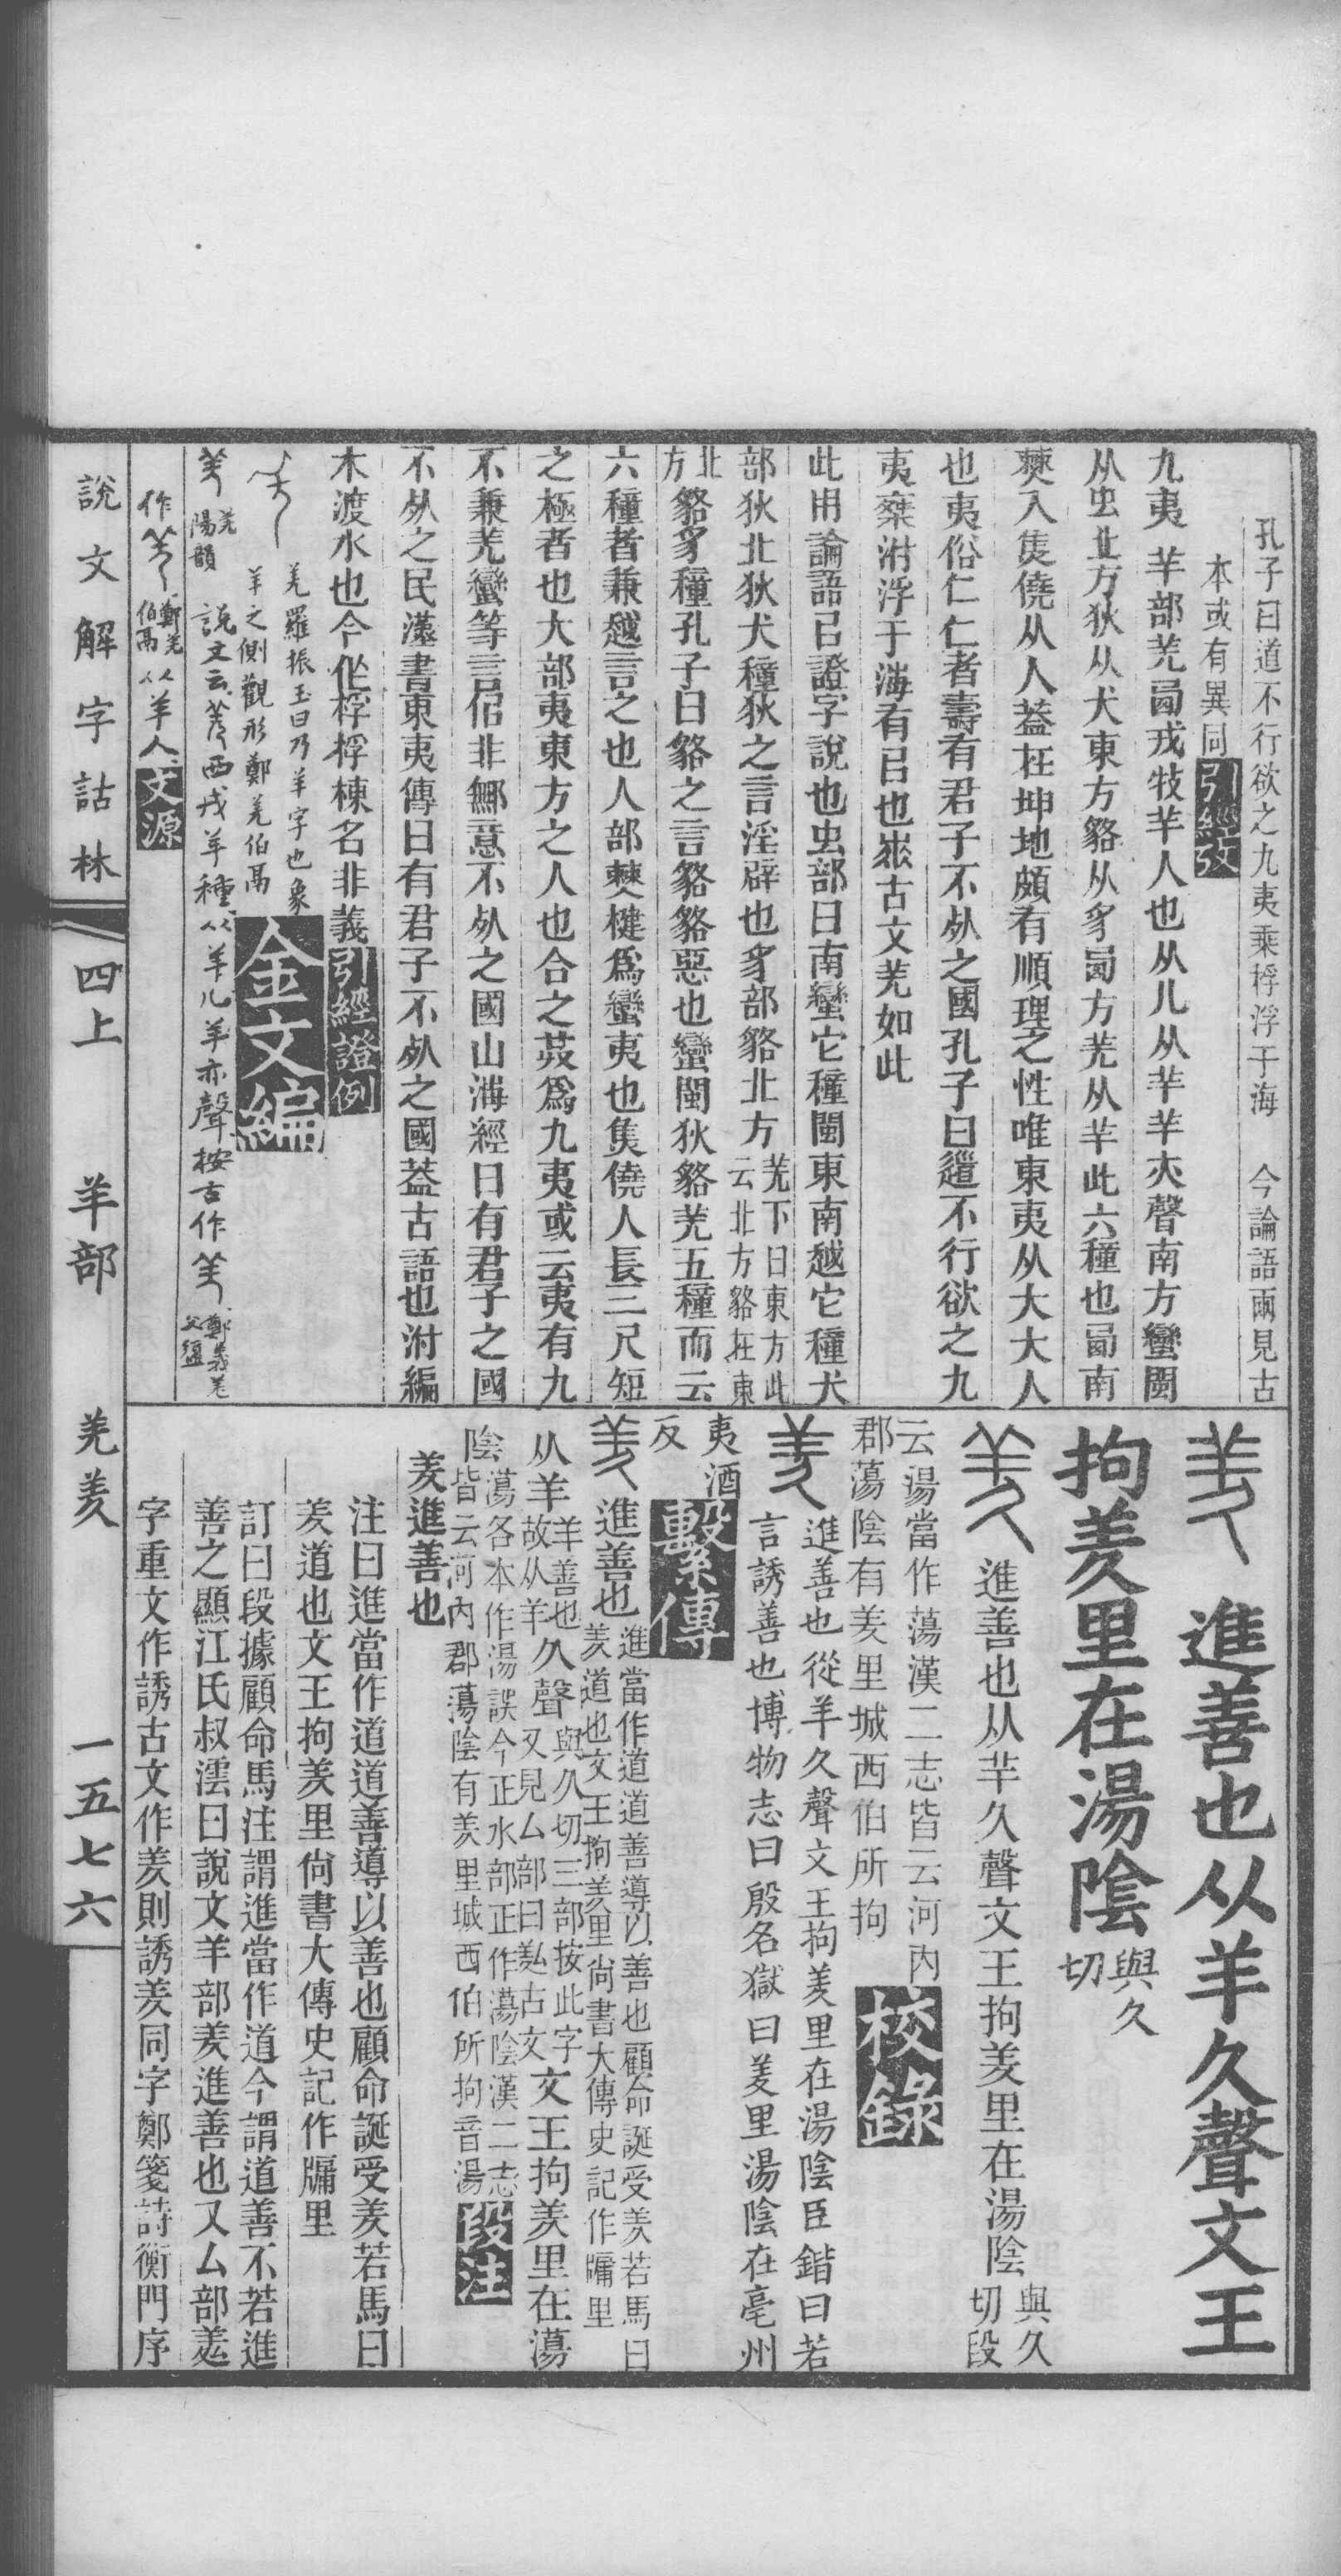 孔子曰道不行欲之九夷乘桴浮于海　今論語兩見古
本或有異同引經攷
九夷　羊部羌𢍰戎牧羊人也从儿从羊羊亦聲南方蠻閩
从虫北方狄从犬東方貉从豸𢍰方羌从羊此六種也𢍰南
僰人僬僥从人蓋在坤地頗有順理之性唯東夷从大大人
也夷俗仁仁者壽有君子不死之國孔子曰道不行欲之九
夷椉泭浮于海有㠯也𡴞古文羌如此
此用論語㠯證字說也虫部曰南蠻它穜閩東南越它穜犬
部狄北狄犬穜狄之言淫辟也豸部貉北方
羌下曰東方此
云北方貉在東
北方
貉豸穜孔子曰貉之言貉貉惡也蠻閩狄貉羌五種而云
六種者兼越言之也人部僰犍爲蠻夷也僬僥人長三尺短
之極者也大部夷東方之人也合之茲爲九夷或云夷有九
不兼羌蠻等言侶非鄦意不死之國山海經曰有君子之國
不死之民漢書東夷傳曰有君子不死之國蓋古語也泭編
木渡水也今作桴桴棟名非義引經證例
羌羅振玉曰乃羊字也象
羊之側觀形鄭羌伯鬲
金文編
羌
陽韻
說文云羌西戎羊種从羊儿羊亦聲按古作
鄭義羌
父盨
作
鄭羌
伯鬲
从羊人文源
進善也从羊久聲文王
拘羑里在湯陰
與久
切
進善也从羊久聲文王拘羑里在湯陰
與久
切段
云湯當作蕩漢二志皆云河內
郡蕩陰有羑里城西伯所拘
校錄
進善也從羊久聲文王拘羑里在湯陰臣鍇曰若
言誘善也博物志曰殷名獄曰羑里湯陰在亳州
夷酒
反
繫傳
進善也
進當作道道善導以善也顧命誕受羑若馬曰
羑道也文王拘羑里尙書大傳史記作牖里
从羊
羊善也
故从羊
久聲
與久切三部按此字
又見厶部曰羑古文
文王拘羑里在蕩
陰
蕩各本作湯誤今正水部正作蕩陰漢二志
皆云河內郡蕩陰有羑里城西伯所拘音湯
段注
羑進善也
注曰進當作道道善導以善也顧命誕受羑若馬曰
羑道也文王拘羑里尙書大傳史記作牖里
訂曰段據顧命馬注謂進當作道今謂道善不若進
善之顯江氏叔澐曰說文羊部羑進善也又厶部羑
字重文作誘古文作羑則誘羑同字鄭箋詩衡門序
說文解字詁林　四上　羊部　羌羑　一五七六